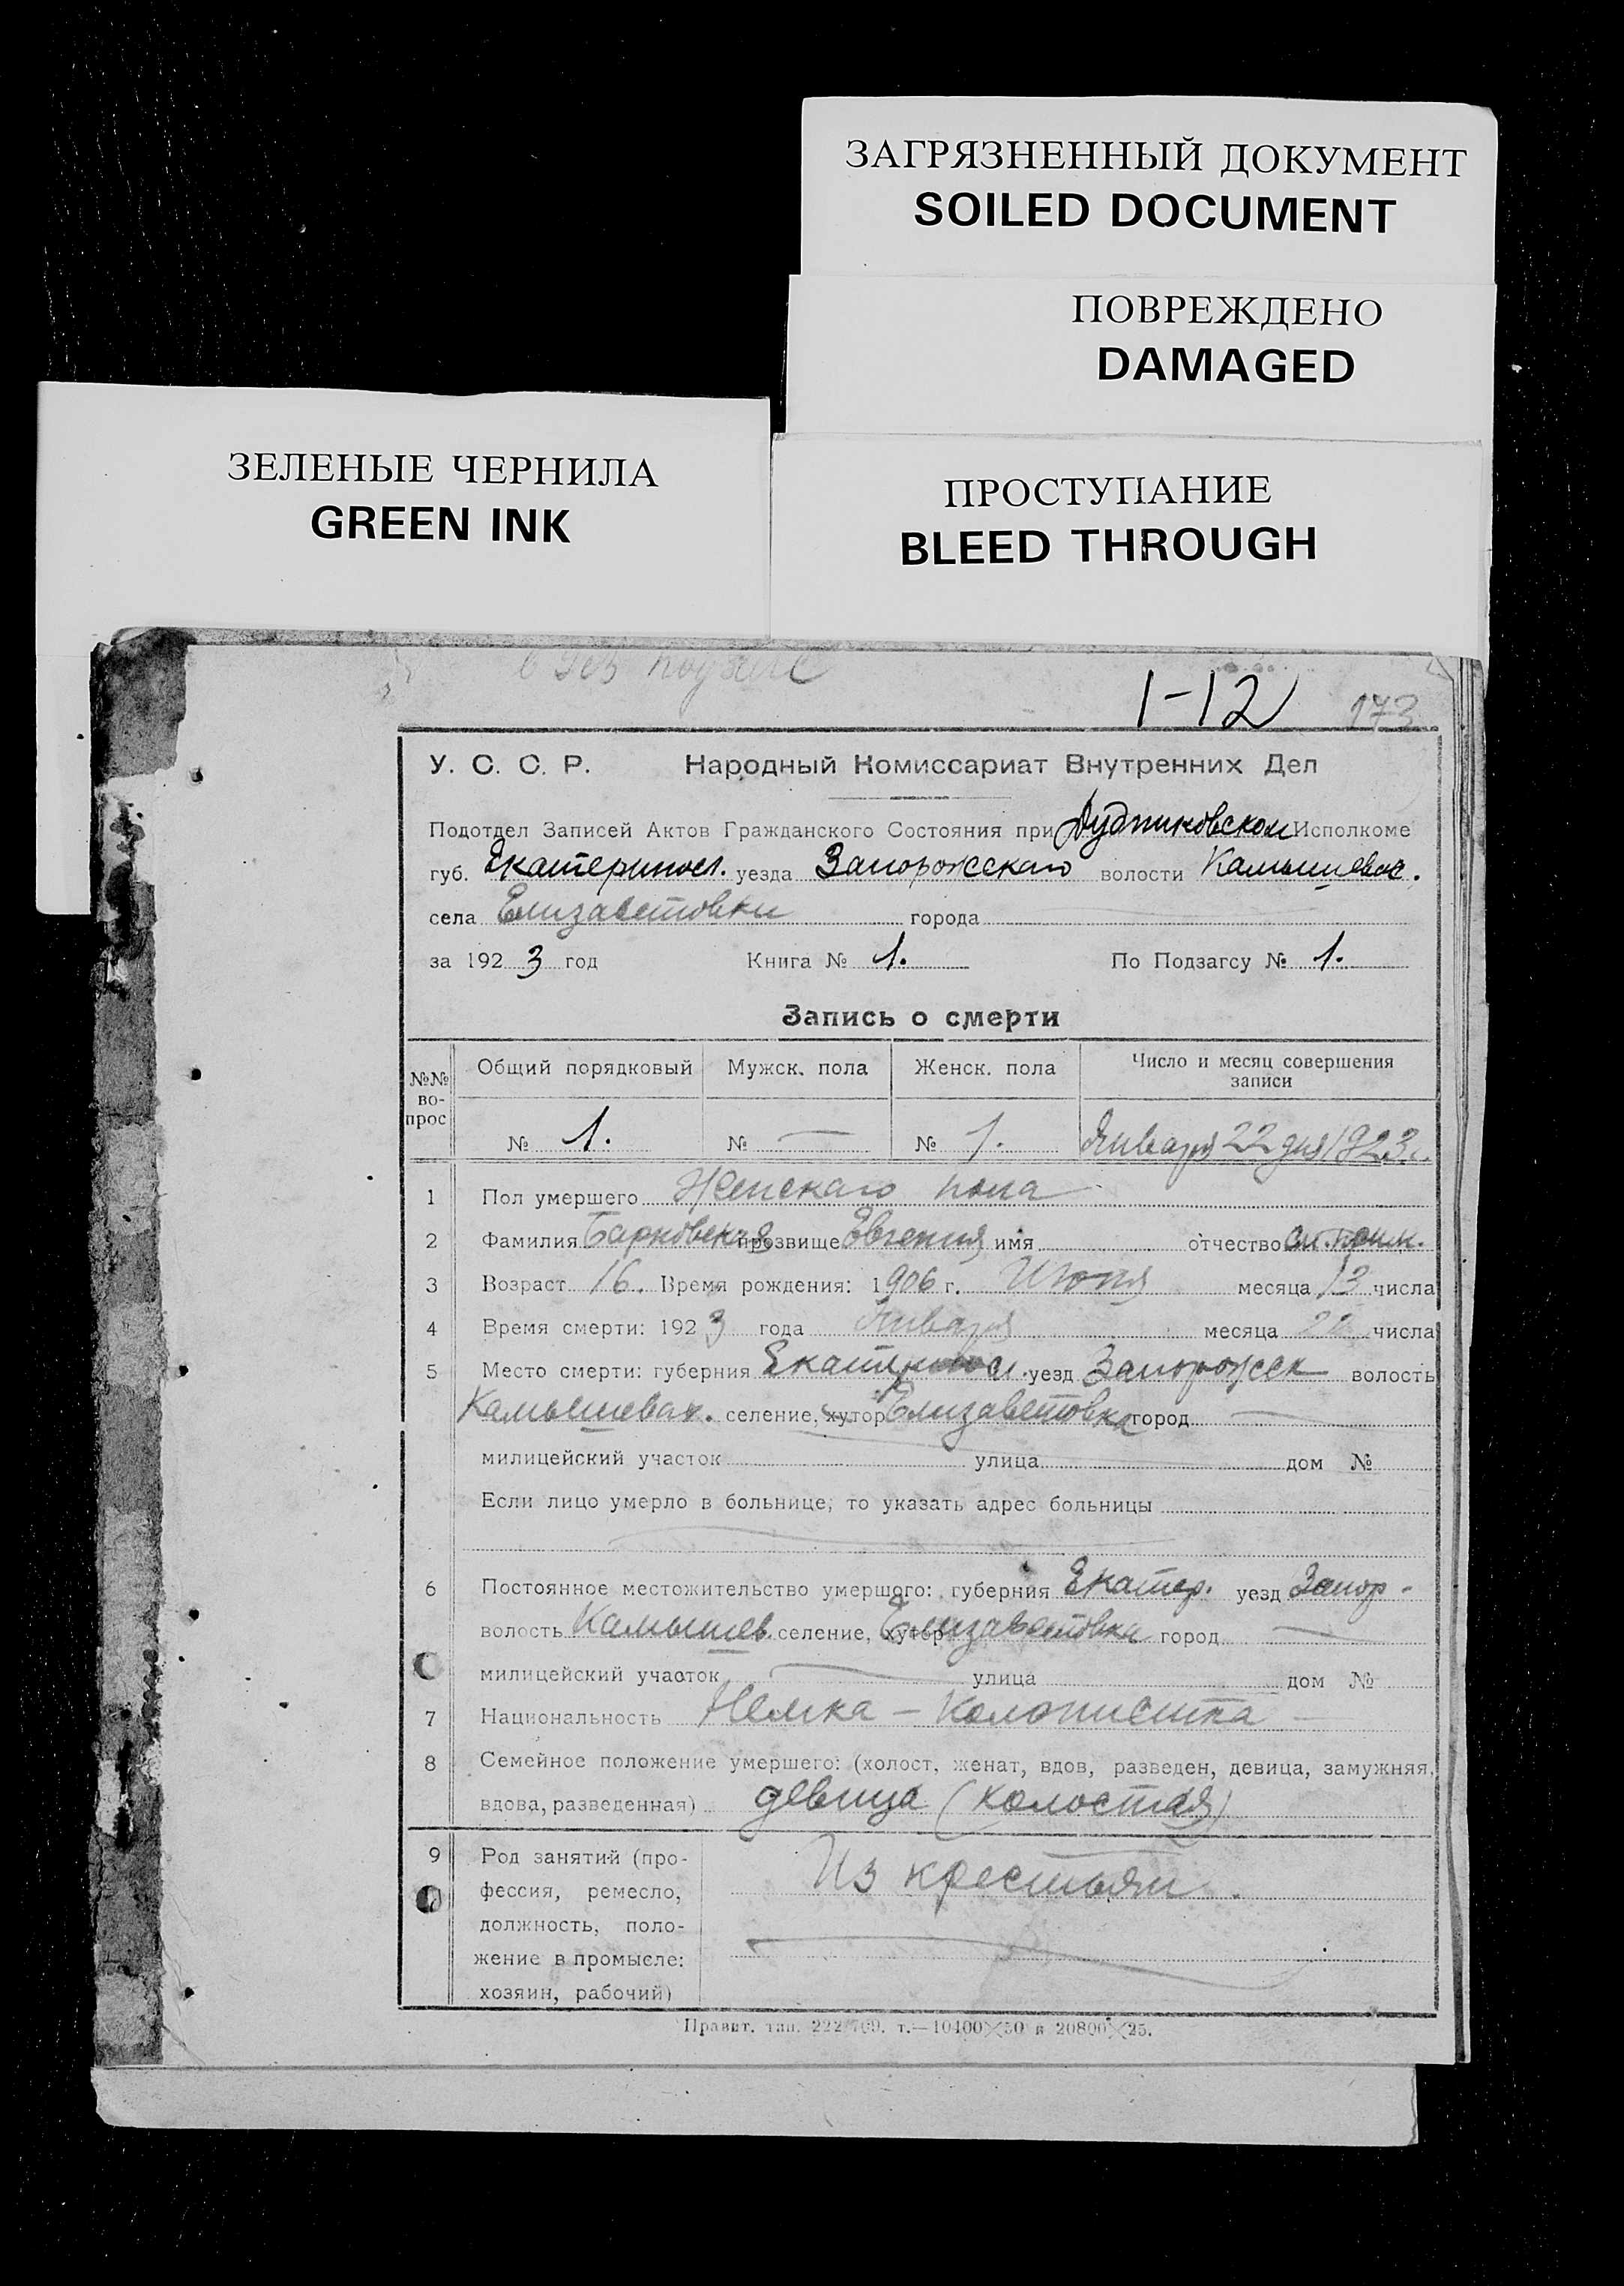 ЗАГРЯЗНЕННЫЙ ДОКУМЕНТ
SOILED DOCUMENT
ПОВРЕЖДЕНО
DAMAGED
ЗЕЛЕНЫЕ ЧЕРНИЛА
GREEN INK
ПРОСТУПАНИЕ
BLEED THROUGH
1-12 173
У. С. С. Р. Народный Комиссариат Внутренних Дел
Подотдел Записей Актов Гражданского Состояния при Дудниковском Исполкоме
губ. Екатериносл. уезда Запорожскаго волости Камышевас.
села Елизаветовки города
за 1923 год Книга № 1. По Подзагсу № 1.
Запись о смерти
№№ вопрос Общий порядковый Мужск. пола Женск. пола Число и месяц совершения записи
№ 1. № — № 1. Января 22 дня 1923 г.
1 Пол умершего Женскаго пола
2 Фамилия Барковская прозвище Евгения имя отчество
3 Возраст 16. Время рождения: 1906 г. Июня месяца 13 числа
4 Время смерти: 1923 года Января месяца 22 числа
5 Место смерти: губерния Екатериносл. уезд Запорожск волость
Камышевах. селение, хутор Елизаветовка город —
милицейский участок улица дом №
Если лицо умерло в больнице, то указать адрес больницы
6 Постоянное местожительство умершого: губерния Екатер. уезд Запор-
волость Камышев. селение, хутор Елизаветовка город —
милицейский участок улица дом №
7 Национальность Немка - Колонистка -
8 Семейное положение умершего: (холост, женат, вдов, разведен, девица, замужняя,
вдова, разведенная) девица (холостая)
9 Род занятий (про-
фессия, ремесло,
должность, поло-
жение в промысле:
хозяин, рабочий)
Из крестьян.
Правит. тип. 222/709. т.—10400×50 и 20800×25.